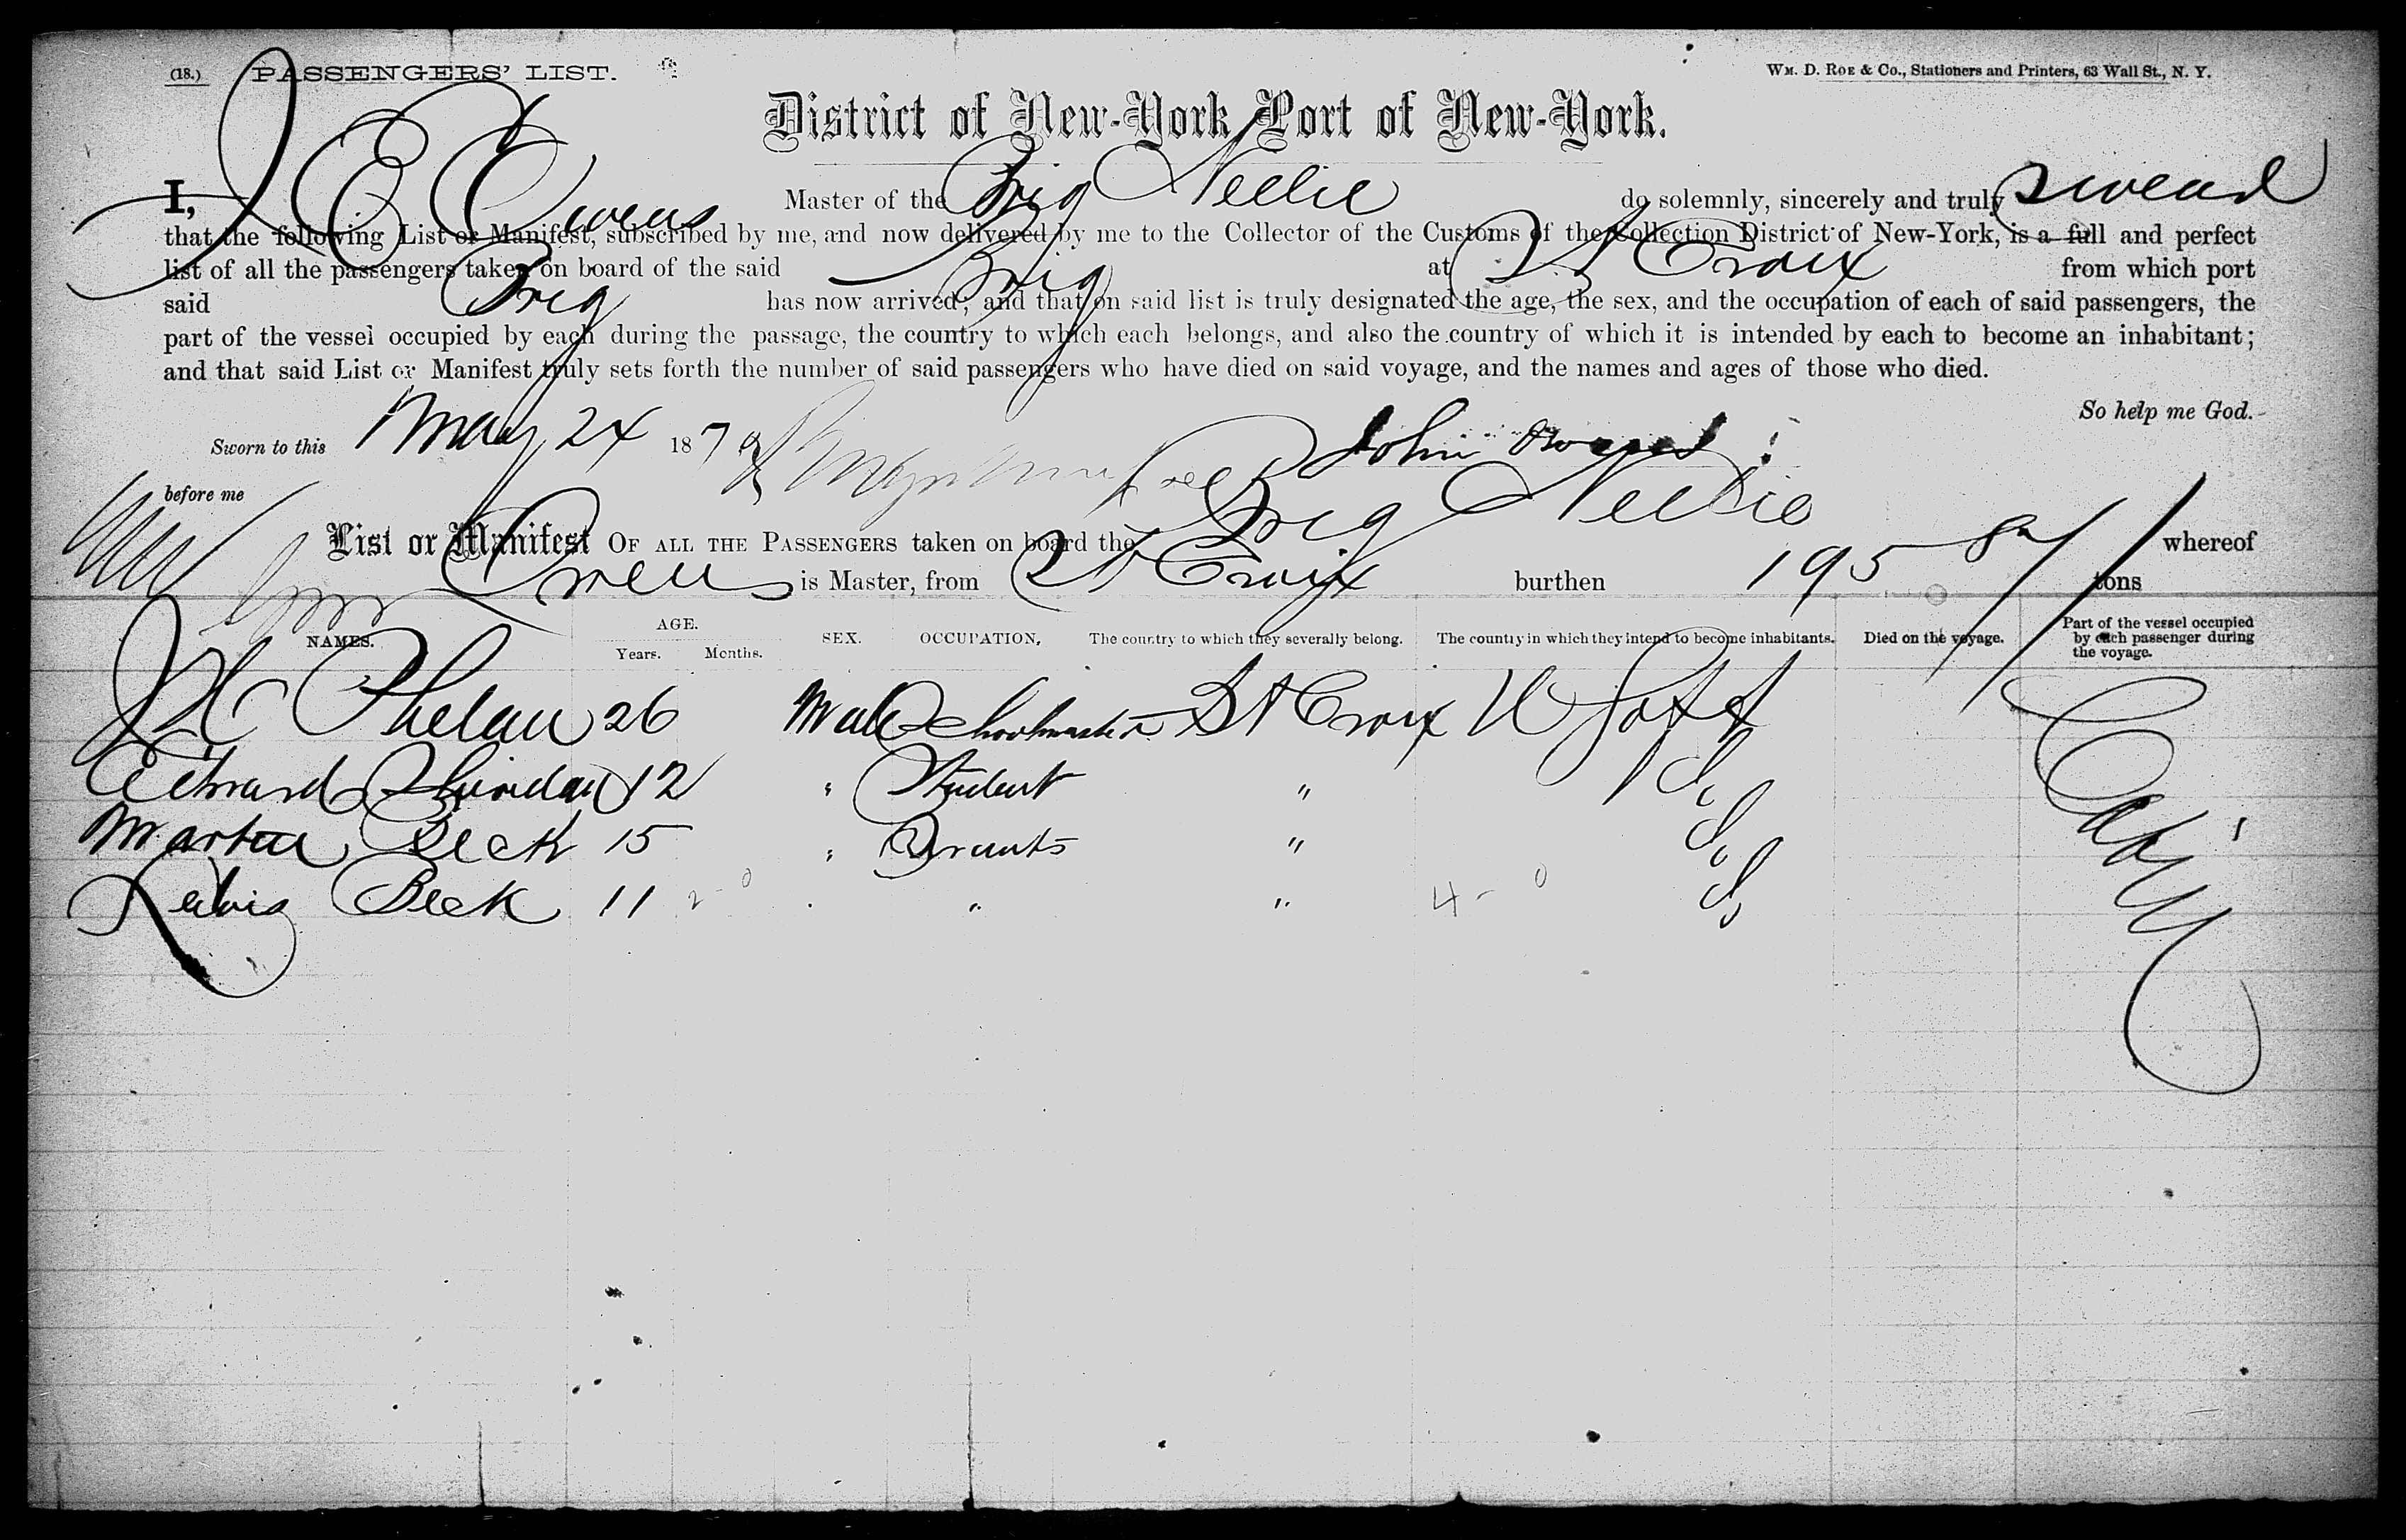 (18.) PASSENGERS' LIST.
Wm. D. Roe & Co., Stationers and Printers, 63 Wall St., N. Y.
District of New-York Port of New-York.
I, J E Owens Master of the Brig Nellie do solemnly, sincerely and truly swear
that the following List or Manifest, subscribed by me, and now delivered by me to the Collector of the Customs of the Collection District of New-York, is a full and perfect
list of all the passengers taken on board of the said Brig at St Croix from which port
said Brig has now arrived; and that on said list is truly designated the age, the sex, and the occupation of each of said passengers, the
part of the vessel occupied by each during the passage, the country to which each belongs, and also the country of which it is intended by each to become an inhabitant;
and that said List or Manifest truly sets forth the number of said passengers who have died on said voyage, and the names and ages of those who died.
So help me God.
Sworn to this May 24 187 John Owens
before me
List or Manifest OF ALL THE PASSENGERS taken on board the Brig Nellie whereof
Owens is Master, from St Croix burthen 195 tons
NAMES. AGE. Years. Months. SEX. OCCUPATION, The country to which they severally belong. The country in which they intend to become inhabitants. Died on the voyage. Part of the vessel occupied by each passenger during the voyage.
Phelan 26 Male Schoolmaster St Croix U S of A Cabin
Edward 12 " Student " Do
Martin Beck 15 " " Do
Beck 11 2-0 " " " 4-0 Do